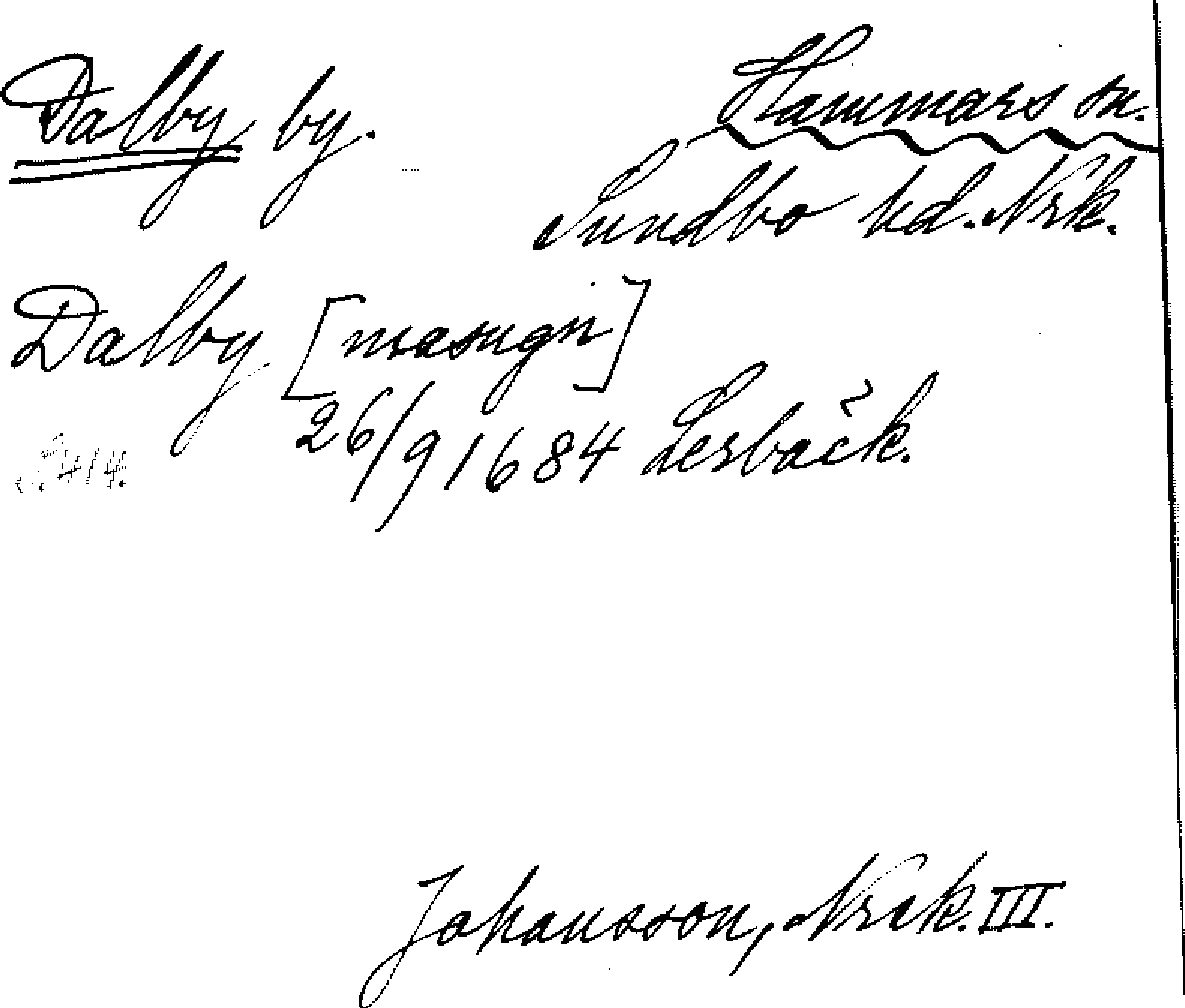 Dalby by.
Hammars sn.
Sundbo hd. Nrk.
Dalby [masugn]
26/9 1684 Lerbäck.
Johansson, Nrk. III.